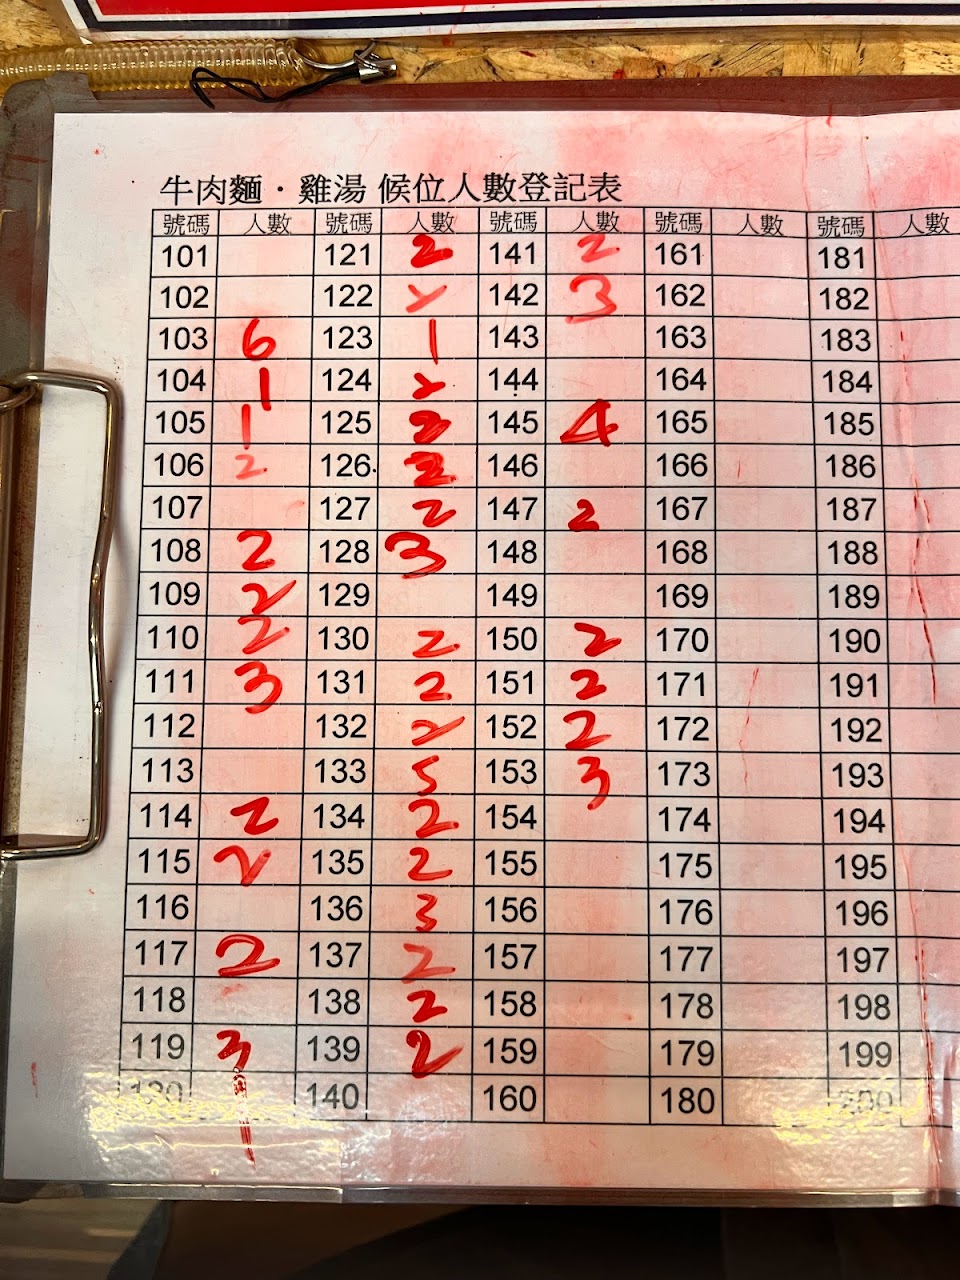 牛肉麵・雞湯 候位人數登記表
號碼 人數 號碼 人數 號碼 人數 號碼 人數 號碼 人數
101 121 2 141 2 161 181
102 122 2 142 3 162 182
103 6 123 1 143 163 183
104 1 124 2 144 164 184
105 1 125 2 145 4 165 185
106 2 126 2 146 166 186
107 127 2 147 2 167 187
108 2 128 3 148 168 188
109 2 129 149 169 189
110 2 130 2 150 2 170 190
111 3 131 2 151 2 171 191
112 132 2 152 2 172 192
113 133 5 153 3 173 193
114 2 134 2 154 174 194
115 2 135 2 155 175 195
116 136 3 156 176 196
117 2 137 2 157 177 197
118 138 2 158 178 198
119 3 139 2 159 179 199
120 1 140 160 180 200